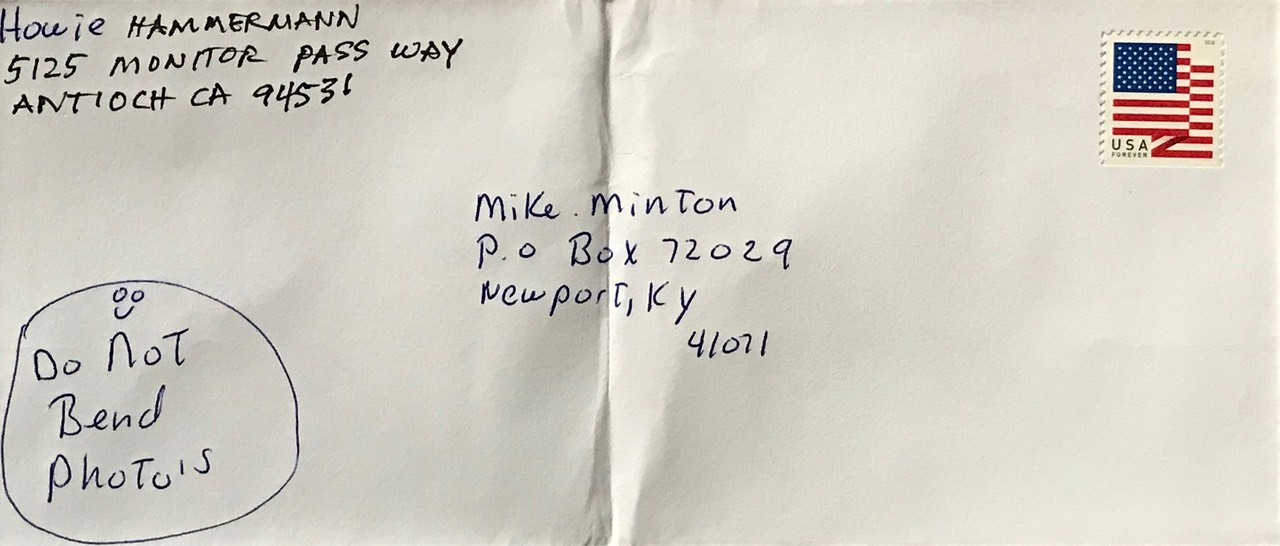 Howie HAMMERMANN
5125 MONITOR PASS WAY
ANTIOCH CA 94531
USA
FOREVER
Mike Minton
P.O Box 72029
Newport, Ky
41071
Do NoT
Bend
PhoTo's